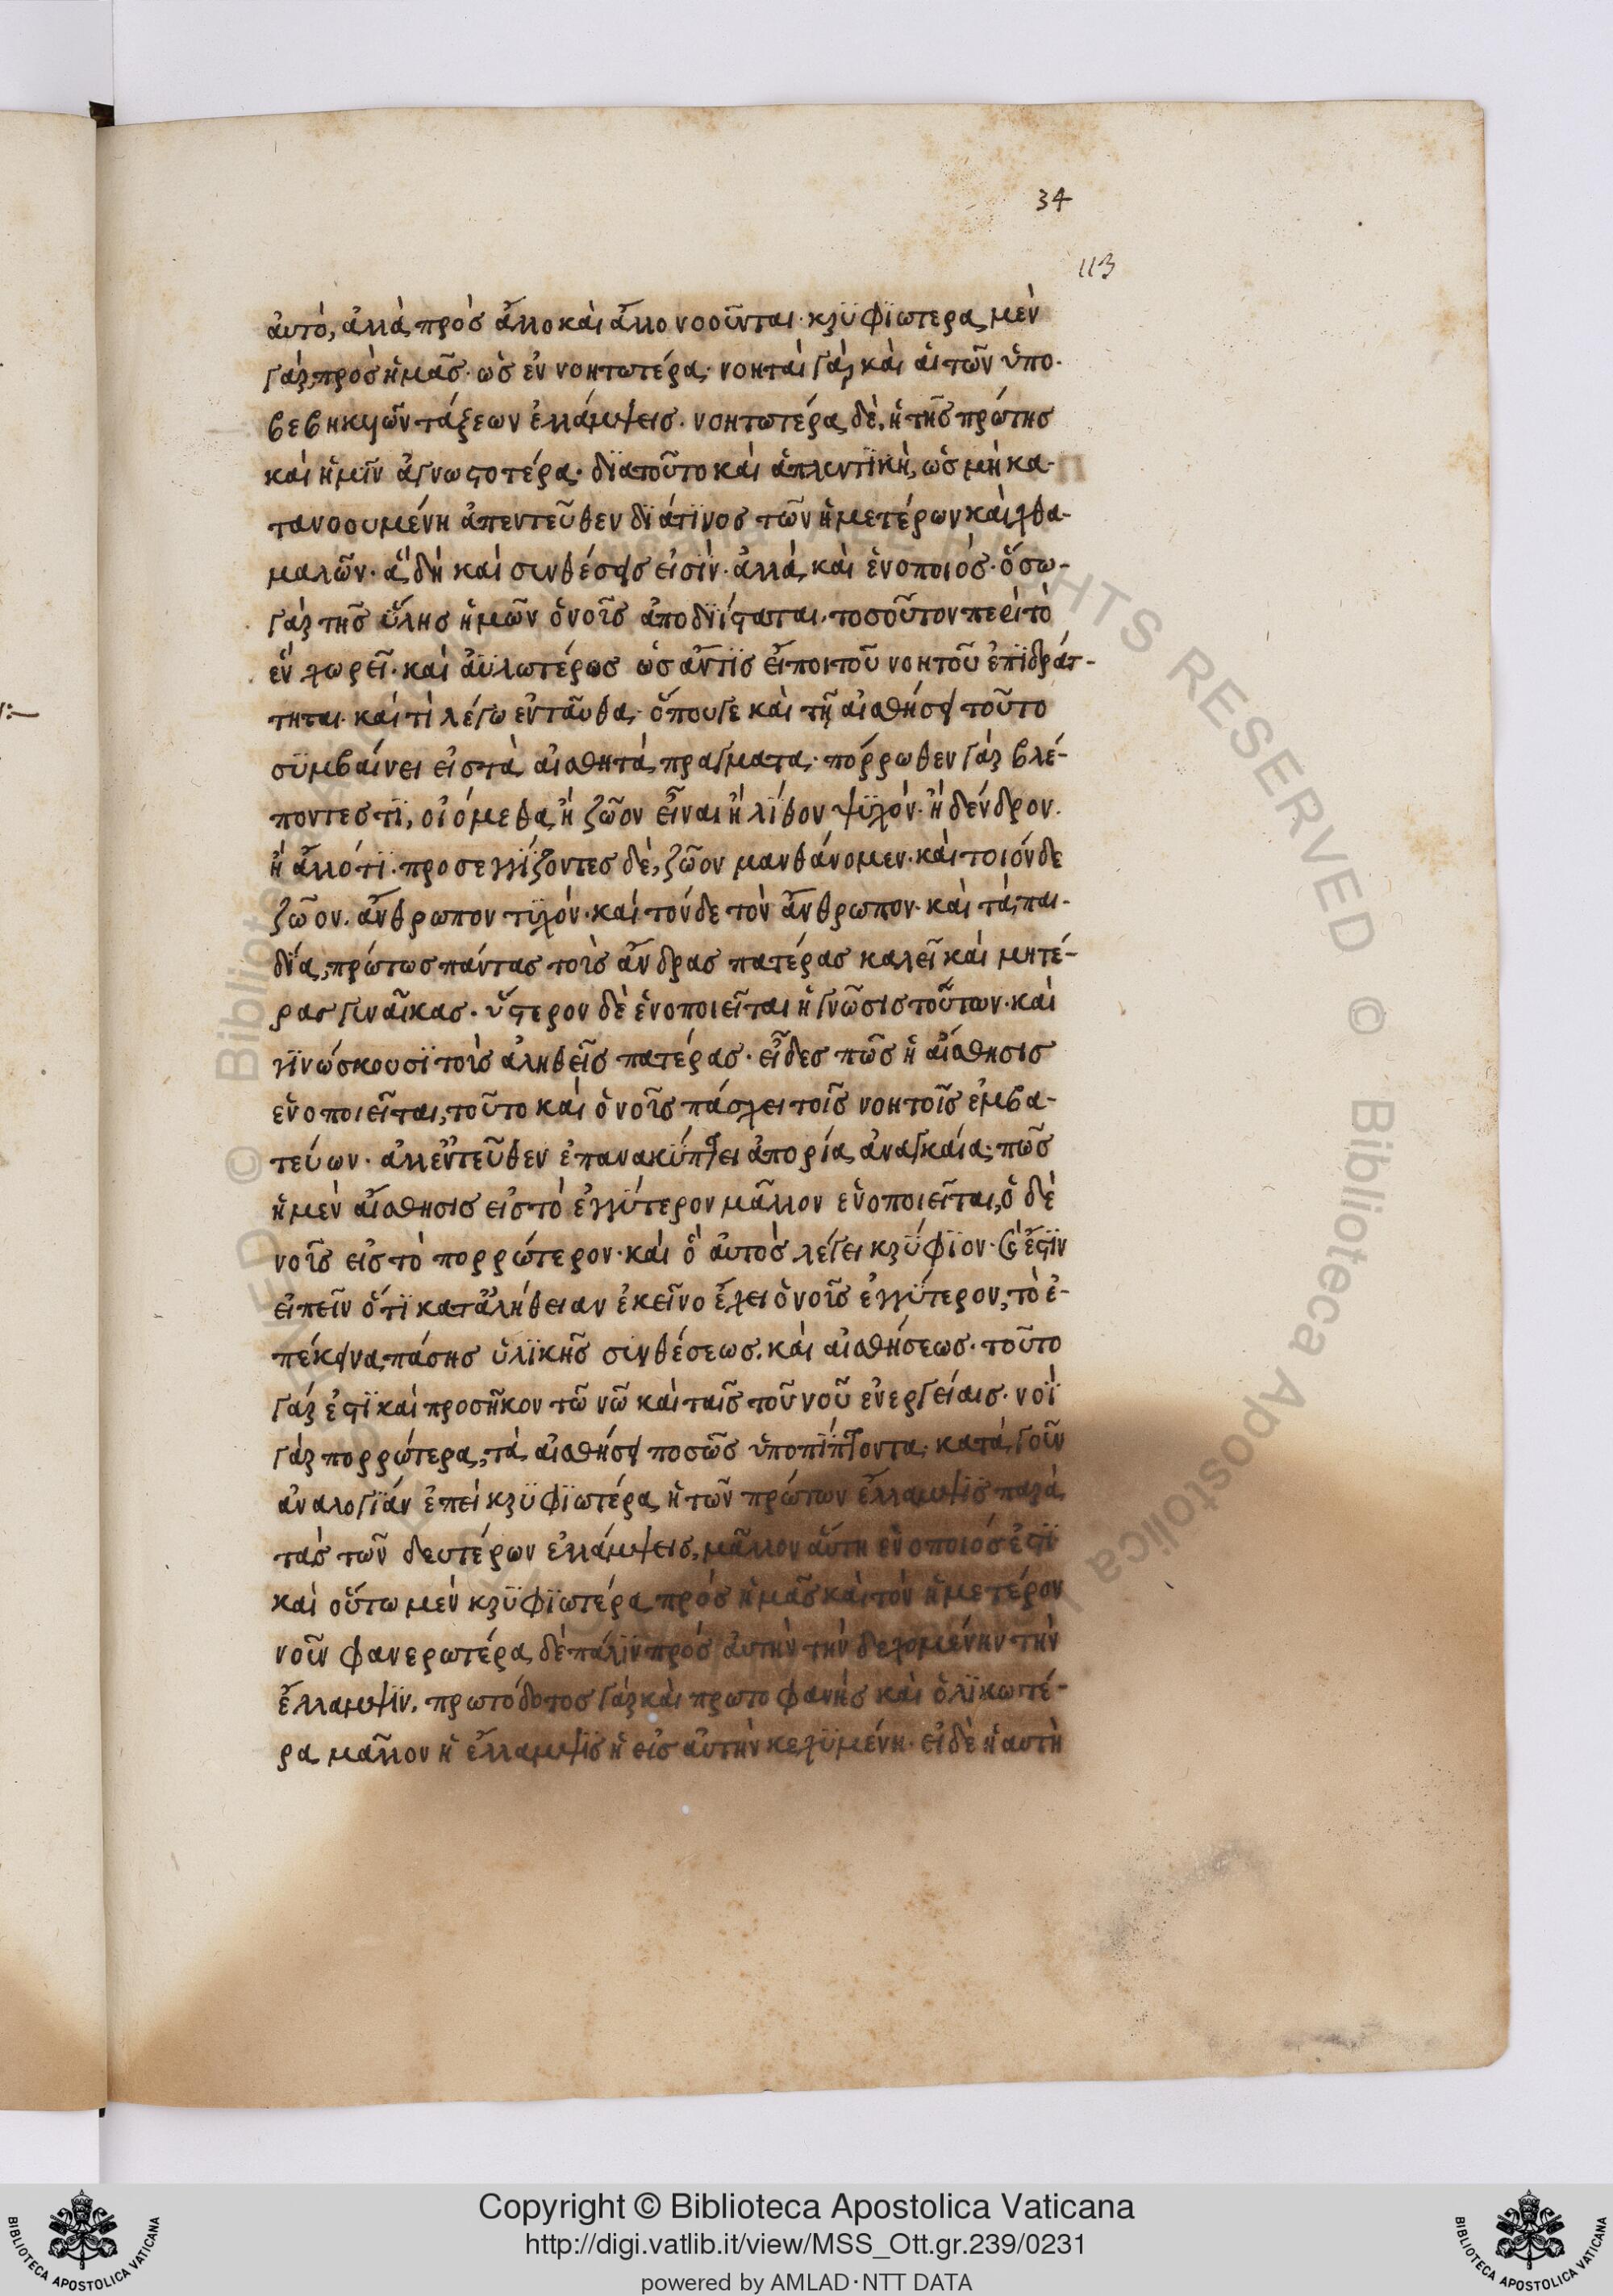 34
113
αὐτὸ, ἀλλὰ πρὸς ἄλλο καὶ ἄλλο νοοῦνται· κρϋφϊωτερα μὲν
γὰρ πρὸς ἡμᾶς· ὡς ἐν νοητωτέρα· νοηταὶ γὰρ καὶ αἱ τῶν ὑπο-
βεβηκυῶν τάξεων ἐλλάμψεις· νοητωτέρα δὲ, ἡ τῆς πρώτης
καὶ ἡμῖν ἀγνωστοτέρα· δϊατοῦτο καὶ ἁπλωτϊκὴ, ὡς μὴ κα-
τανοουμένη ἀπεντεῦθεν δϊάτϊνος τῶν ἡμετέρων καὶ χθα-
μαλῶν· ἃ δὴ καὶ συνθέσεις εἰσϊν· ἀλλὰ καὶ ἑνοποιός· ὅσω
γὰρ τῆς ὕλης ἡμῶν ὁ νοῦς ἀποδϊΐσταται, τοσοῦτον περὶ τὸ
ἓν χωρεῖ· καὶ ἀϋλωτέρως ὡς ἄντϊς εἴποι τοῦ νοητοῦ ἐπϊδράτ-
τηται· καὶ τί λέγω ἐνταῦθα· ὅπουγε καὶ τῇ αἰσθήσει τοῦτο
σϋμβαίνει εἰς τὰ αἰσθητὰ πράγματα· πόρρωθεν γὰρ βλέ-
ποντες τϊ, οἰόμεθα ἢ ζῶον εἶναι ἢ λίθον ψϋχὸν· ἢ δένδρον·
ἢ ἄλλό τϊ· προσεγγίζοντες δὲ, ζῶον μανθάνομεν· καὶ τοιόνδε
ζῶον· ἄνθρωπον τϋχὸν· καὶ τόνδε τὸν ἄνθρωπον· καὶ τὰ παι-
δία, πρώτως πάντας τοὺς ἄνδρας πατέρας καλεῖ καὶ μητέ-
ρας γυναῖκας· ὕστερον δὲ ἑνοποιεῖται ἡ γνῶσις τούτων· καὶ
γϊνώσκουσϊ τοὺς ἀληθεῖς πατέρας· εἶδες πῶς ἡ αἴσθησις
ἑνοποιεῖται, τοῦτο καὶ ὁ νοῦς πάσχει τοῖς νοητοῖς ἐμβα-
τεύων· ἀλλἐντεῦθεν ἐπανακύπτει ἀπορία ἀναγκαία· πῶς
ἡ μὲν αἴσθησις εἰς τὸ ἐγγύτερον μᾶλλον ἑνοποιεῖται, ὁ δὲ
νοῦς εἰς τὸ πορρώτερον· καὶ ὃ αὐτὸς λέγει κρύφϊον· καὶ ἔστϊν
εἰπεῖν ὅτϊ κατἀλήθειαν ἐκεῖνο ἔχει ὁ νοῦς ἐγγύτερον, τὸ ἐ-
πέκεινα πάσης ὑλϊκῆς συνθέσεως· καὶ αἰσθήσεως· τοῦτο
γὰρ ἐστϊ καὶ προσῆκον τῶ νῶ καὶ ταῖς τοῦ νοῦ ἐνεργείαις· νοῒ
γὰρ πορρώτερα, τὰ αἰσθήσει ποσῶς ὑποπίπτοντα· κατὰ γοῦν
ἀναλογΐαν ἐπεὶ κρϋφϊωτέρα ἡ τῶν πρώτων ἔλλαμψϊς παρὰ
τὰς τῶν δευτέρων ἐλλάμψεις, μᾶλλον αὕτη ἑνοποιός ἐστϊ
καὶ οὕτω μὲν κρϋφϊωτέρα πρὸς ἡμᾶς καὶ τὸν ἡμετέρον
νοῦν φανερωτέρα δὲ πάλϊν πρὸς αὐτὴν τὴν δεχομένην τὴν
ἔλλαμψϊν, πρωτόδοτος γὰρ καὶ πρωτοφανὴς καὶ ὁλϊκωτέ-
ρα μᾶλλον ἡ ἔλλαμψϊς ἡ εἰς αὐτὴν κεχϋμένη· εἰ δὲ ἡ αυτὴ
Copyright © Biblioteca Apostolica Vaticana
http://digi.vatlib.it/view/MSS_Ott.gr.239/0231
powered by AMLAD·NTT DATA
BIBLIOTECA APOSTOLICA VATICANA
BIBLIOTECA APOSTOLICA VATICANA